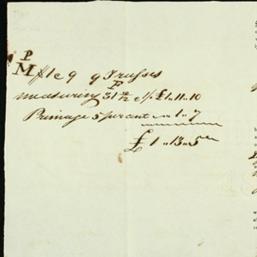 P
M
9 Trusses
measuring 31 P £1..11..10
Primage 5 pr cent 1..7
£1..13..5